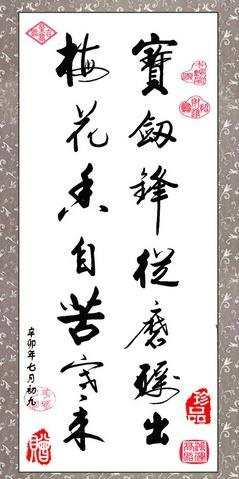 寶劔鋒從磨礪出
梅花香自苦寒来
辛卯年七月初九
珍品
贈